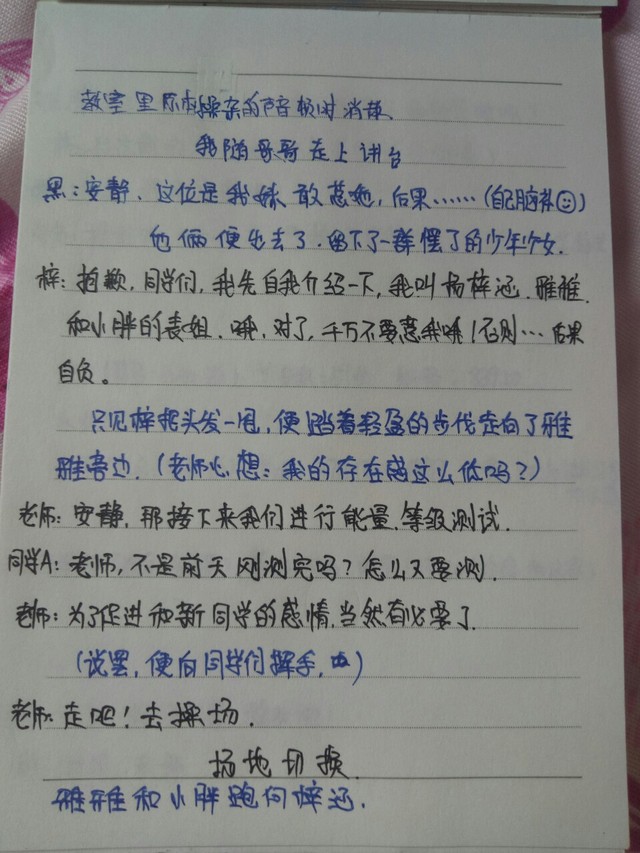 教室里原本操杂的声音顿时消失
我随哥哥走上讲台
黑:安静,这位是我妹 敢惹她,后果……(自己脑补☺)
他俩便出去了.留下了一群懵了的少年少女.
梓:抱歉,同学们,我先自我介绍一下,我叫杨梓涵.雅雅.
和小胖的表姐.哦,对了,千万不要惹我哦!否则…后果
自负。
只见梓把头发一甩,便踏着轻盈的步伐走向了雅
雅旁边.(老师心想:我的存在感这么低吗?)
老师:安静,那接下来我们进行能量.等级测试.
同学A:老师,不是前天刚测完吗?怎么又要测.
老师:为了促进和新同学的感情,当然有必要了.
(说罢,便向同学们挥手.)
老师:走吧!去操场.
场地切换
雅雅和小胖跑向梓涵.